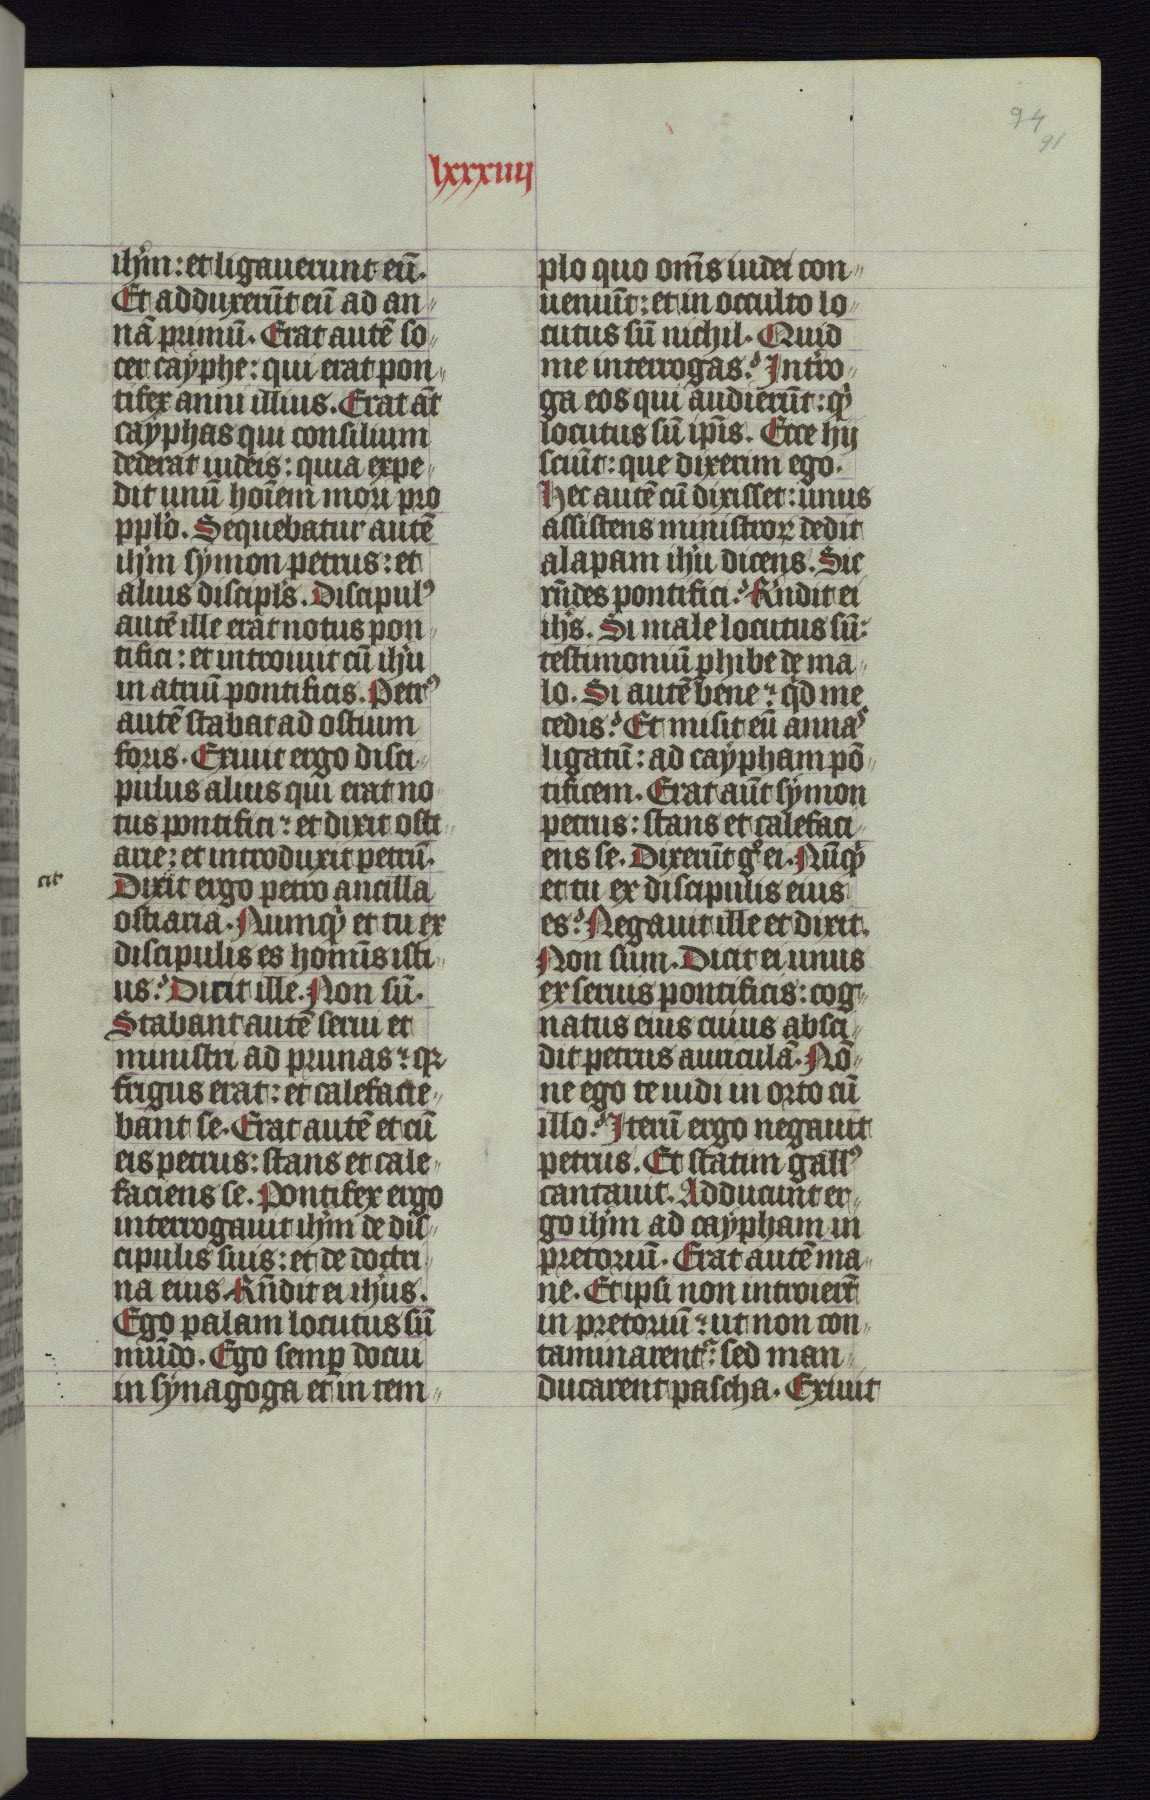 94
91
lxxxiiii
ihm̄: et ligauerunt eū.
Et adduxerūt eū ad an„
nā primū. Erat autē so„
cer cayphe: qui erat pon„
tifex anni illius. Erat āt
cayphas qui consilium
dederat iudeis: quia expe„
dit unū hoīem mori pro
pplo. Sequebatur autē
ihm̄ symon petrus: et
alius discipls. Discipulꝰ
autē ille erat notus pon„
tifici: et introiuit cū ihu
in atriū pontificis. Petrꝰ
autē stabat ad ostium
foris. Exiuit ergo disci„
pulus alius qui erat no„
tus pontifici: et dixit osti„
arie: et introduxit petrū.
cit
Dixit ergo petro ancilla
ostiaria. Numqͥ et tu ex
discipulis es homīs isti„
us? Dicit ille. Non sū.
Stabant autē serui et
ministri ad prunas: qꝛ
frigus erat: et calefacie„
bant se. Erat autē et cū
eis petrus: stans et cale„
faciens se. Pontifex ergo
interrogauit ihm̄ de dis„
cipulis suis: et de doctri„
na eius. Rn̄dit ei ihus.
Ego palam locutus sū
mūdo. Ego semꝑ docui
in synagoga et in tem„
plo quo om̄s iudei con„
ueniūt: et in occulto lo„
cutus sū nichil. Quid
me interrogas? Intro„
ga eos qui audierūt: qͥ
locutus sū ip̄is. Ecce hij
sciūt: que dixerim ego.
Hec autē cū dixisset: unus
assistens ministroꝝ dedit
alapam ihu dicens. Sic
rn̄des pontifici? Rn̄dit ei
ihs. Si male locutus sū:
testimoniū phibe de ma„
lo. Si autē bene: qd me
cedis? Et misit eū annas
ligatū: ad caypham pō„
tificem. Erat aūt symon
petrus: stans et calefaci„
ens se. Dixerūt gͦ ei. Nūqͥ
et tu ex discipulis eius
es? Negauit ille et dixit.
Non sum. Dicit ei unus
ex seruis pontificis: cog„
natus eius cuius absci„
dit petrus auriculā. Nō„
ne ego te uidi in orto cū
illo? Iterū ergo negauit
petrus. Et statim gallꝰ
cantauit. Adducunt er„
go ihm̄ ad caypham in
pretoriū. Erat autē ma„
ne. Et ipsi non introierūt
in pretoriū: ut non con„
taminarentᷣ: sed man„
ducarent pascha. Exiuit